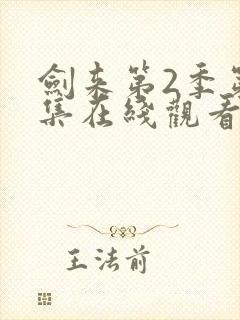 劍来第2季第
集在綫觀看
王法前